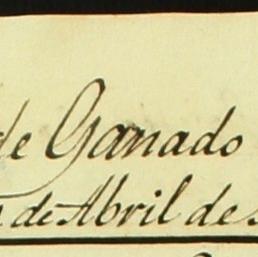 de Ganado
de Abril de